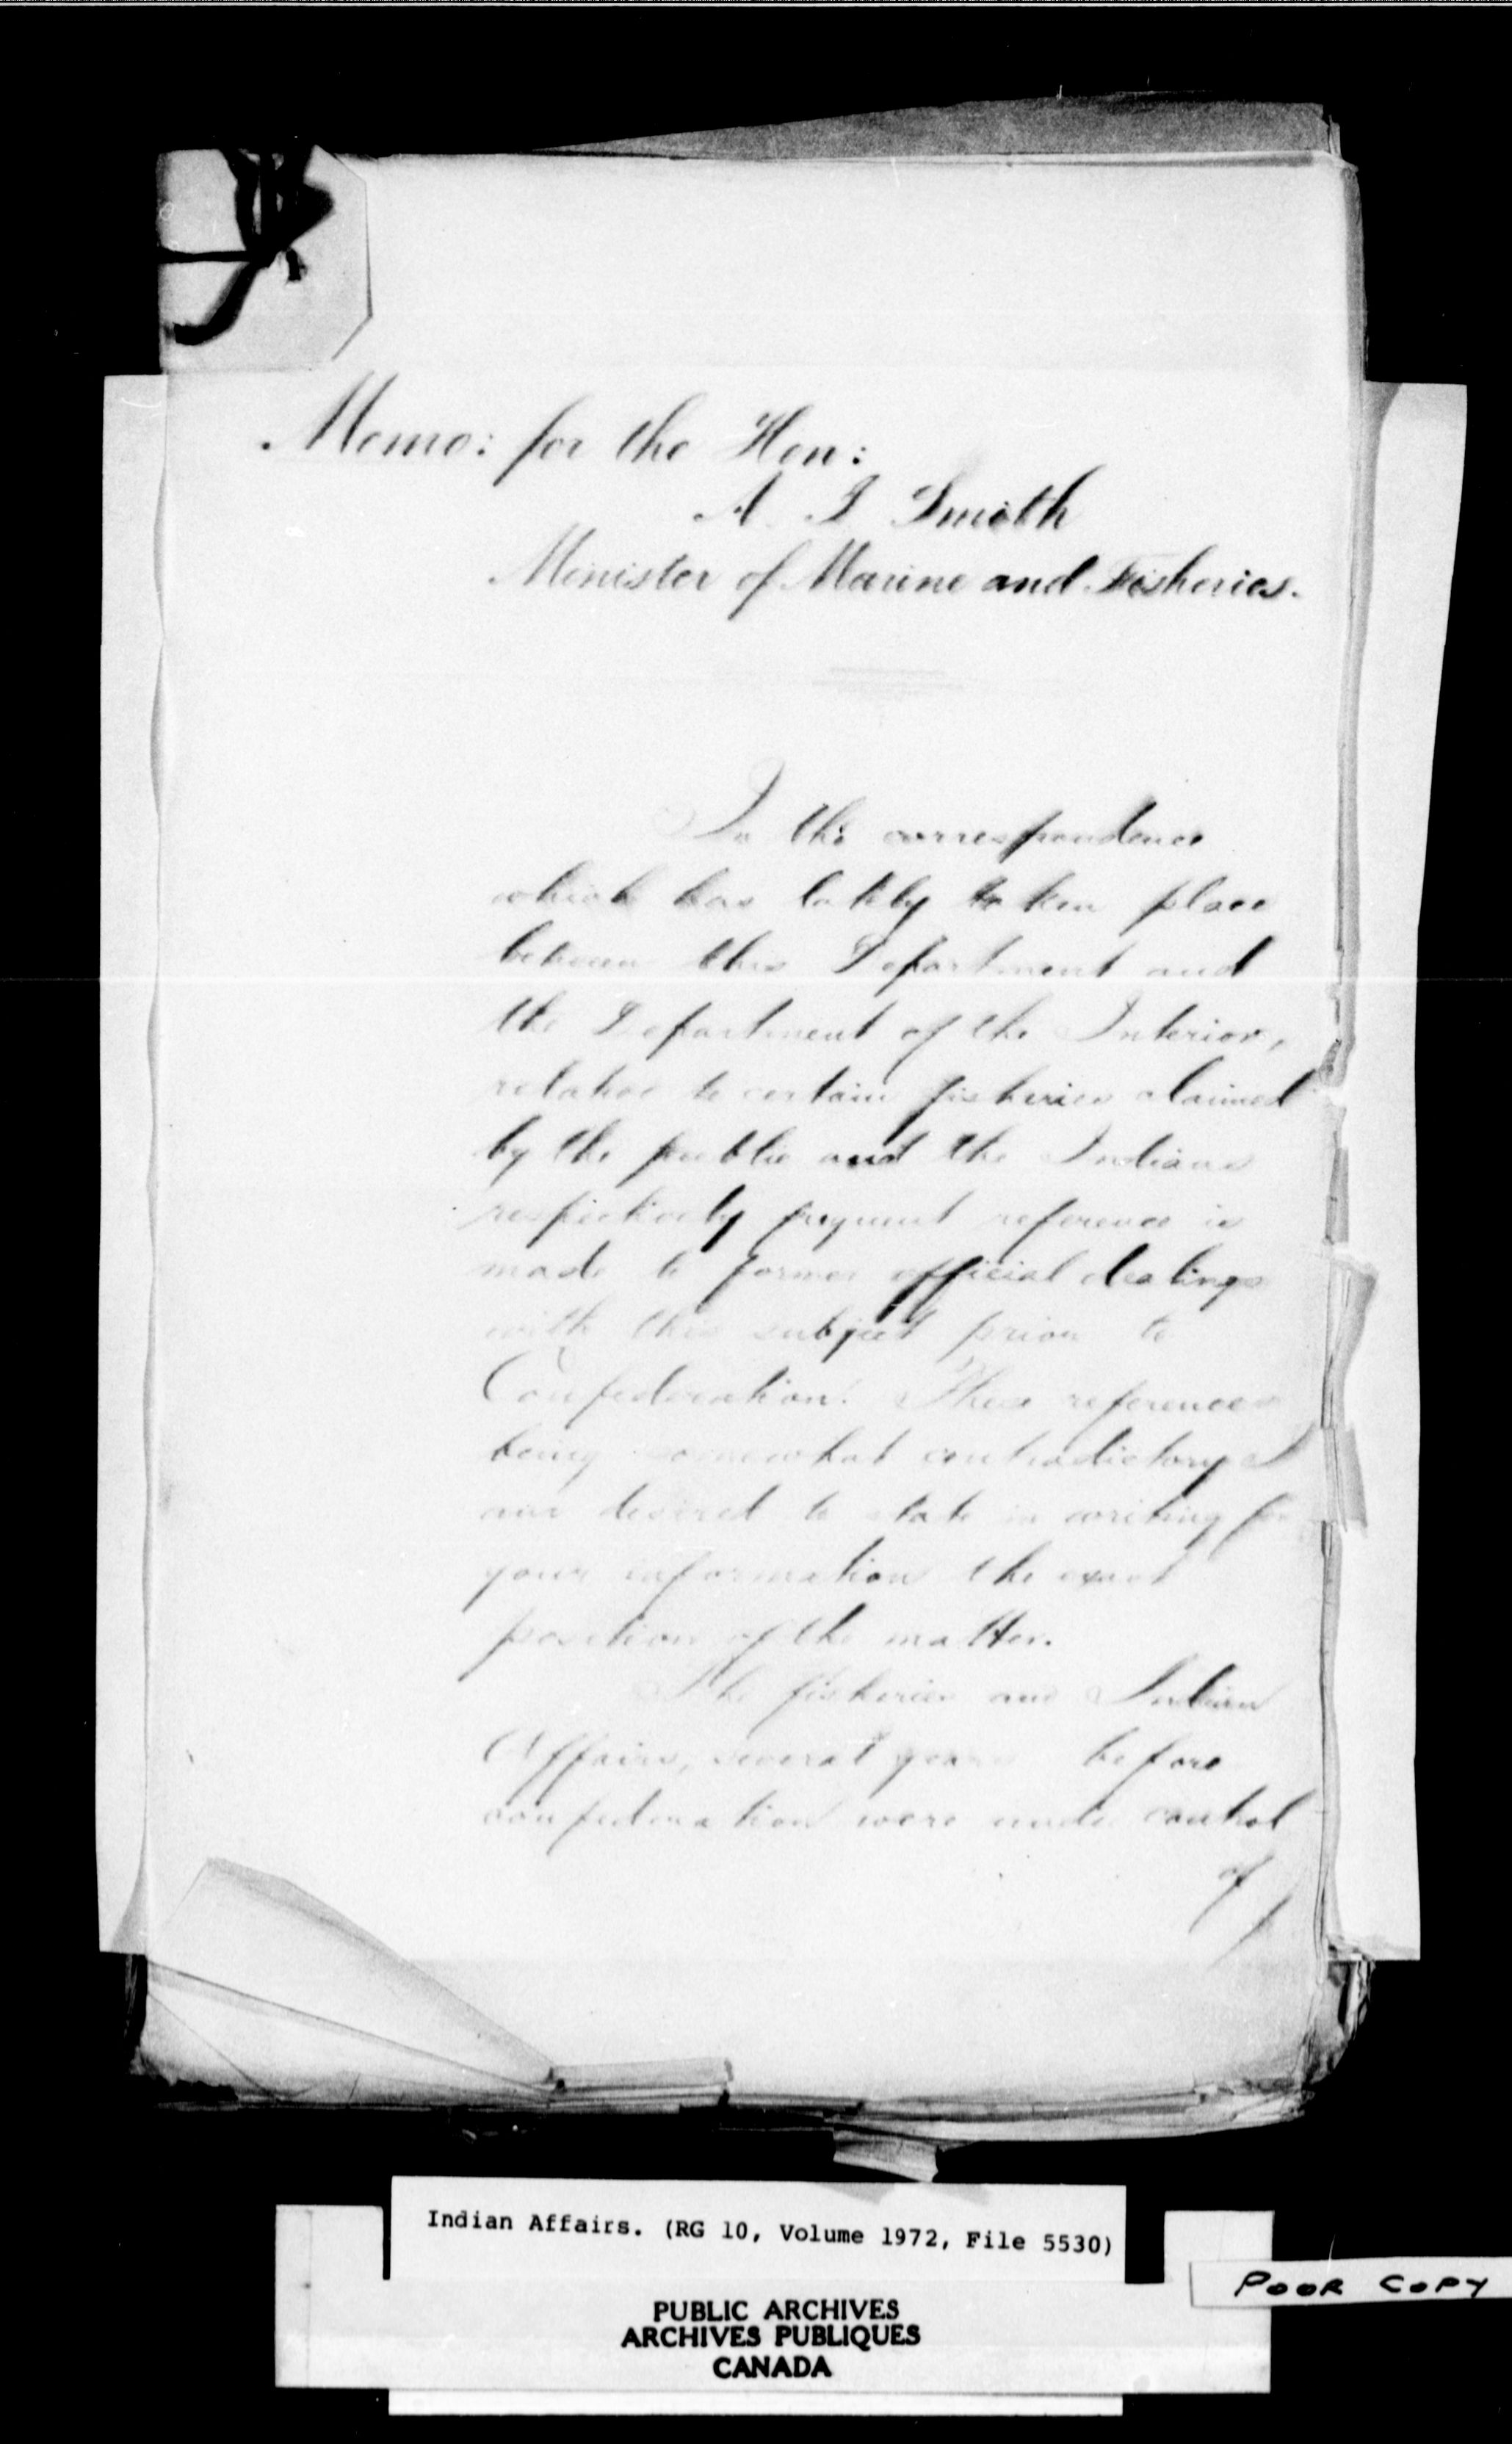 Memo: for the Hon:
A. J. Smith
Minister of Marine and Fisheries.
In the correspondence
which has lately taken place
between this Department and
the Department of the Interior,
relative to certain fisheries claimed
by the public and the Indians
respectively frequent reference is
made to former official dealings
with this subject prior to
Confederation. These references
being somewhat contradictory I
am desired to state in writing for
your information the exact
position of the matter.
The fisheries and Indian
Affairs, several years before
confederation were under control
of
Indian Affairs. (RG 10, Volume 1972, File 5530)
PUBLIC ARCHIVES
ARCHIVES PUBLIQUES
CANADA
POOR COPY